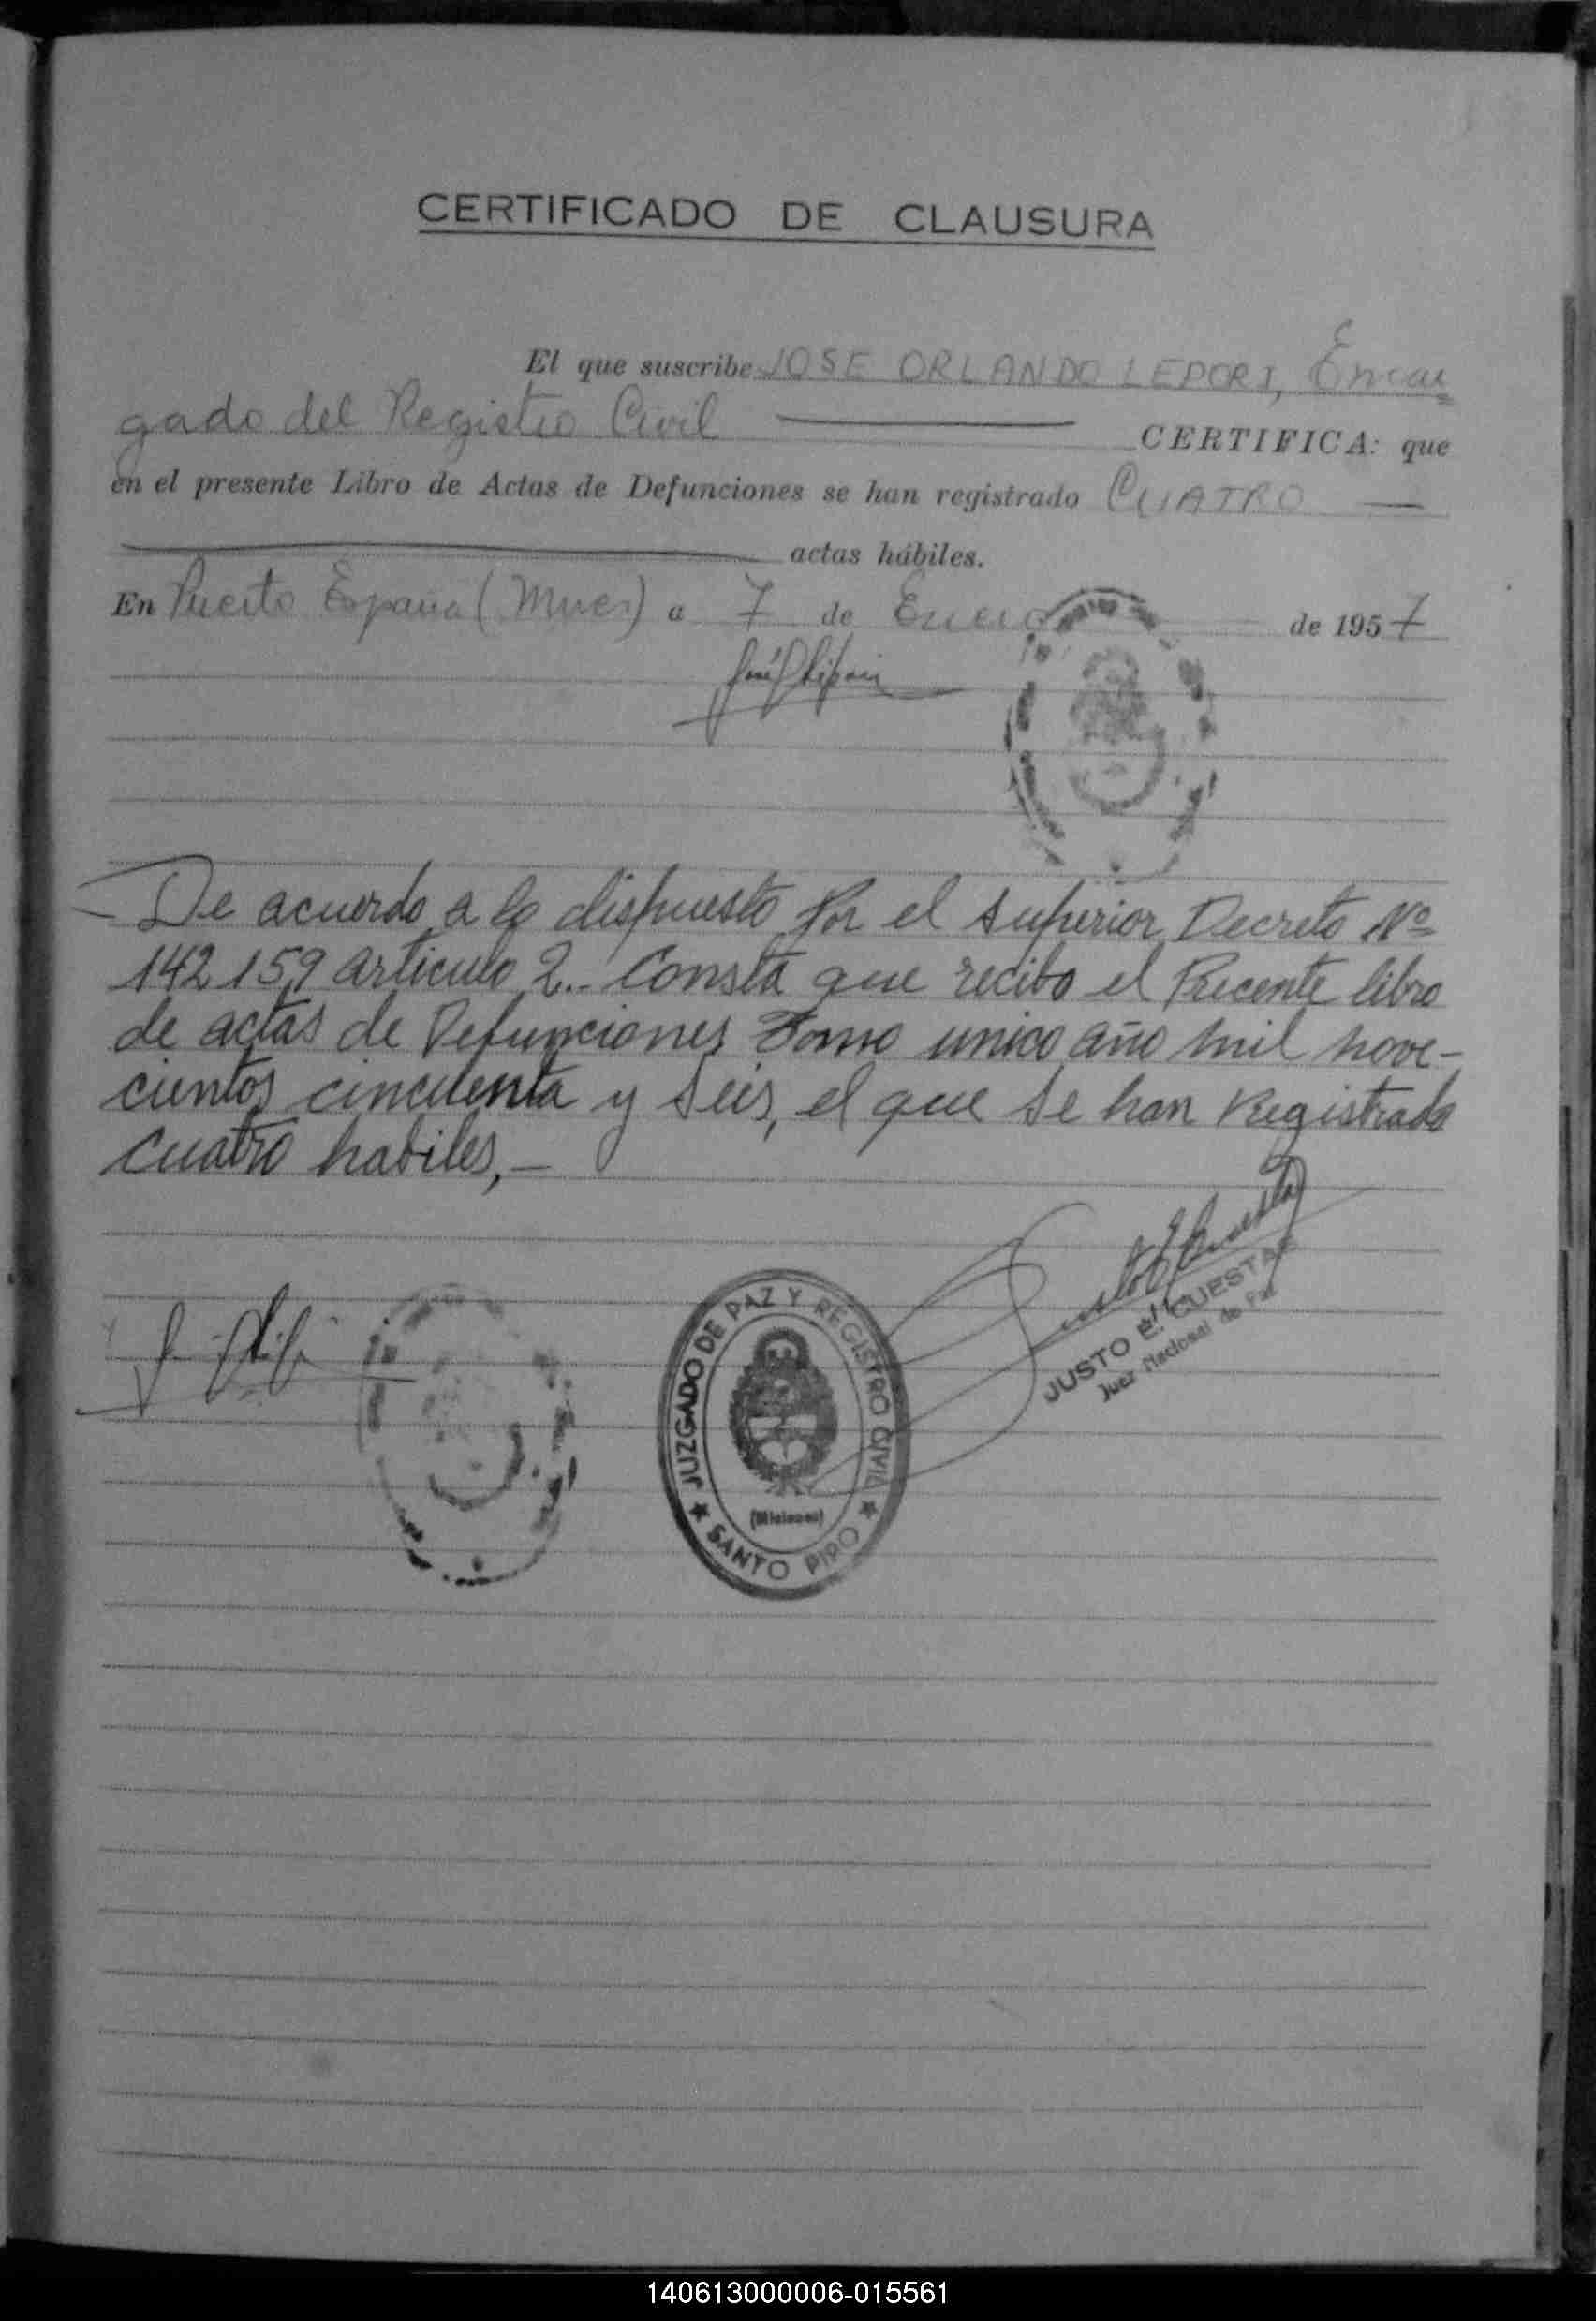 CERTIFICADO DE CLAUSURA
El que suscribe JOSE ORLANDO LEPORI, Encar=
gado del Registro Civil CERTIFICA: que
en el presente Libro de Actas de Defunciones se han registrado CUATRO —
actas hábiles.
En Puerto España (Mnes) a 7 de Enero de 1957
De acuerdo a lo dispuesto por el superior Decreto Nº
142159 articulo 2.- Consta que recibo el Precente libro
de actas de Defunciones Tomo unico año mil nove-
cientos cincuenta y seis, el que se han Registrado
cuatro habiles,-
JUZGADO DE PAZ Y REGISTRO CIVIL
(Misiones)
SANTO PIPO
JUSTO E. CUESTAS
Juez Nacional de Paz
140613000006-015561